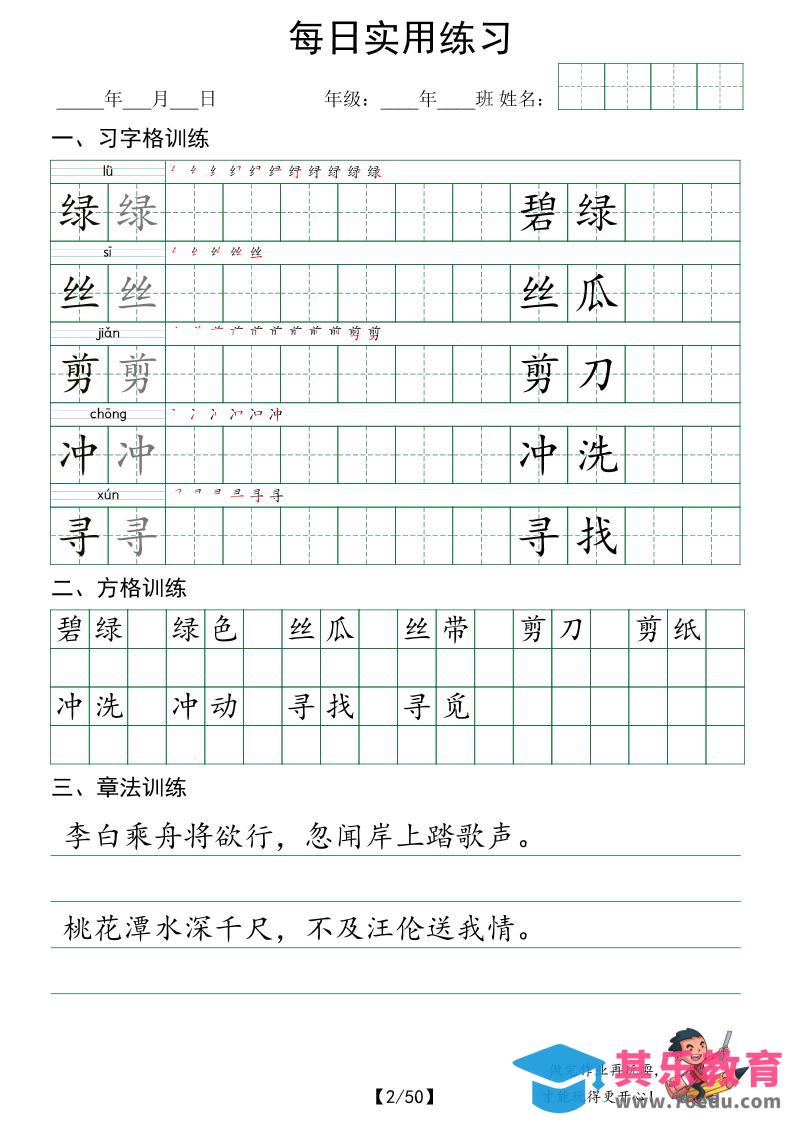 每日实用练习
_____年___月___日 年级：____年____班 姓名：
一、习字格训练
lǜ
绿 绿 碧 绿
sī
丝 丝 丝 瓜
jiǎn
剪 剪 剪 刀
chōng
冲 冲 冲 洗
xún
寻 寻 寻 找
二、方格训练
碧 绿 绿 色 丝 瓜 丝 带 剪 刀 剪 纸
冲 洗 冲 动 寻 找 寻 觅
三、章法训练
李白乘舟将欲行，忽闻岸上踏歌声。
桃花潭水深千尺，不及汪伦送我情。
做完作业再玩耍，
才能玩得更开心！
【2/50】
其乐教育
www.76edu.com